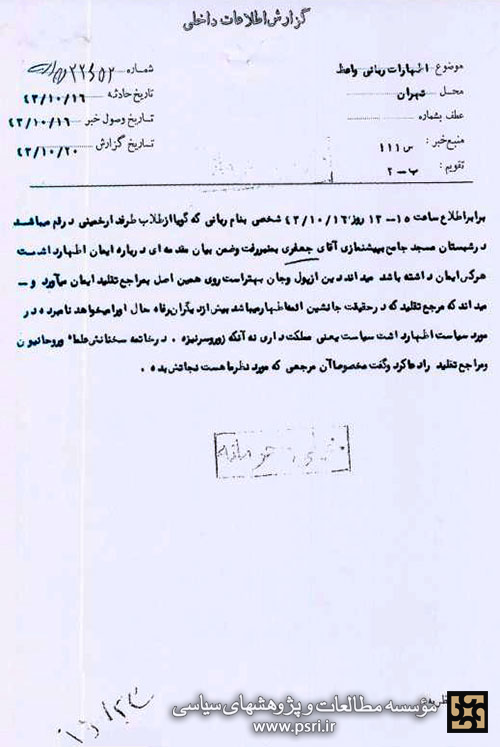 گزارش اطلاعات داخلی
موضوع اظهارات ربانی واعظ
شماره ۲۲۶۵۲
محل تهران
تاریخ حادثه ۴۳/۱۰/۱۶
عطف بشماره
تاریخ وصول خبر ۴۳/۱۰/۱۶
منبع خبر : س ۱۱۱
تاریخ گزارش ۴۳/۱۰/۲۰
تقویم : ب-۲
برابر اطلاع ساعت ۱۵-۱۲ روز ۴۳/۱۰/۱۶ شخصی بنام ربانی که گویا از طلاب طرفدار خمینی در قم میباشد
در شبستان مسجد جامع بپیشنمازی آقای جعفری بمنبر رفت وضمن بیان مقدمه ای درباره ایمان اظهار داشت
هرکس ایمان داشته باشد میداند دین از پول وجان بهتر است روی همین اصل بمراجع تقلید ایمان میآورد و -
میداند که مرجع تقلید که در حقیقت جانشین ائمه اطهار میباشد بیش از دیگران رفاه حال او را میخواهد نامبرده در
مورد سیاست اظهار داشت سیاست یعنی مملکت داری نه آنکه زور و سرنیزه . در خاتمه سخنانش علماء و روحانیون
ومراجع تقلید را دعا کرد وگفت مخصوصاً آن مرجعی که مورد نظر ما هست نجاتش بده .
خیلی محرمانه
مؤسسه مطالعات و پژوهشهای سیاسی
www.psri.ir